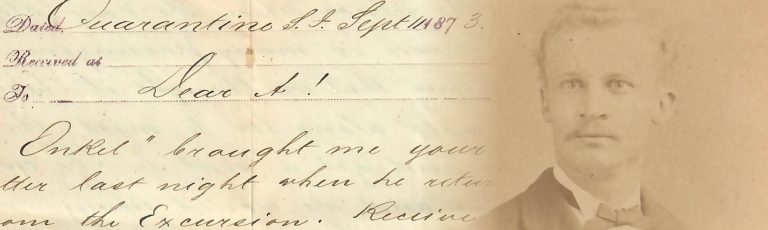 Dated, Quarantine S.I. Sept 11 1873.
Received at
To Dear A!
Onkel" brought me your
tter last night when he retur
om the Excursion. Receive